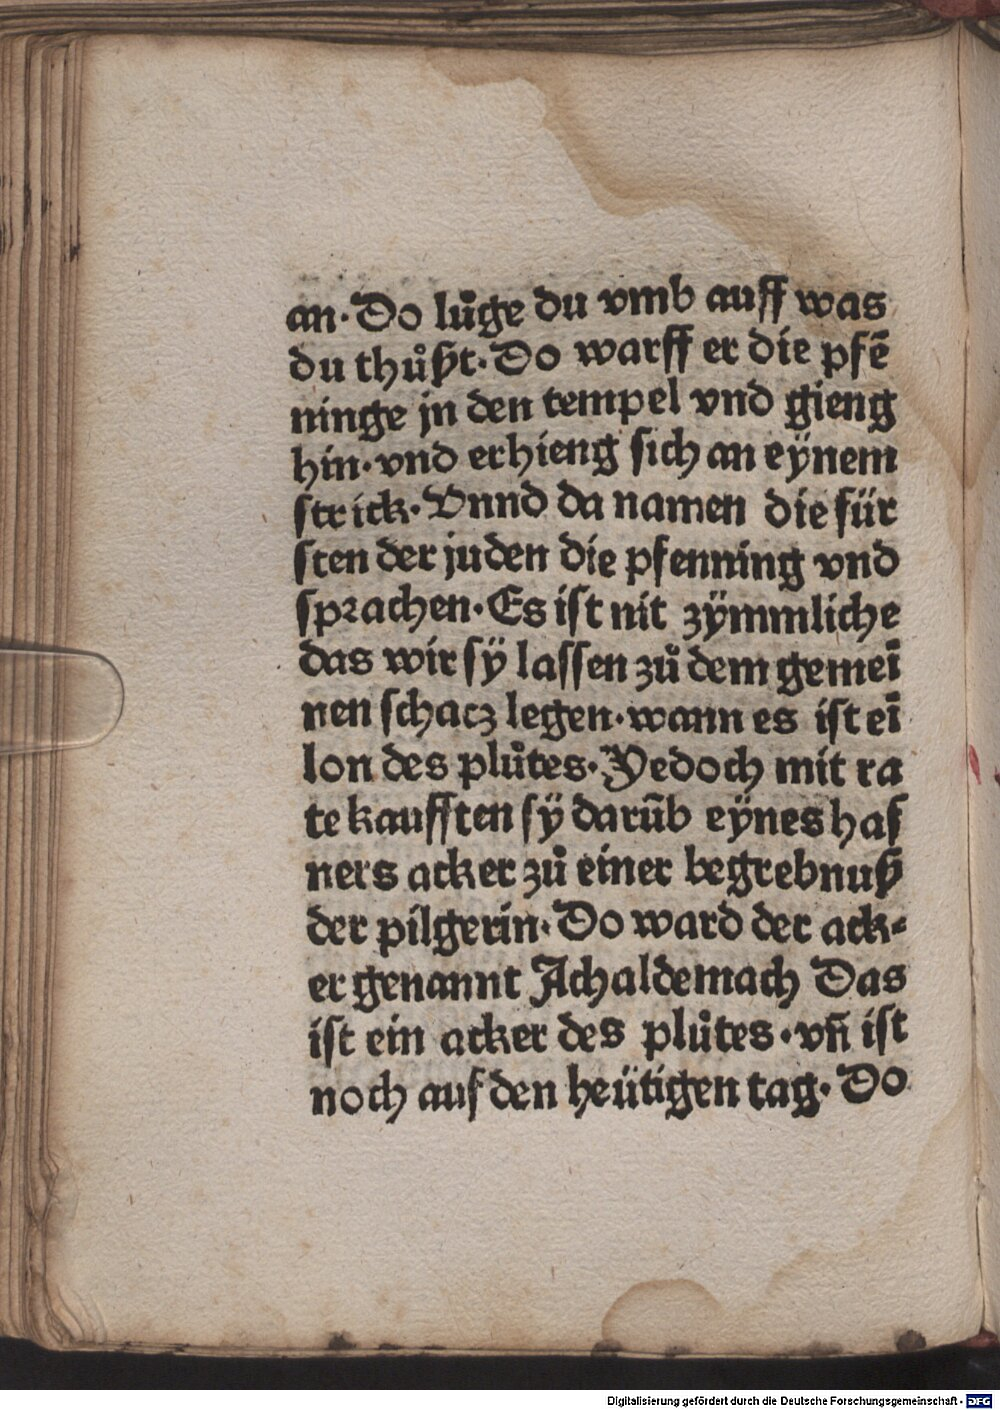 an·Do lůge du vmb auff was
du thůßt·Do warff er die pfē
ninge jn den tempel vnd gieng
hin·vnd erhieng sich an eÿnem
strick·Vnnd da namen die für
sten der juden die pfenning vnd
sprachen·Es ist nit zÿmmliche
das wir sÿ lassen zů dem gemeī
nen schacz legen·wann es ist eī
lon des plůtes·Yedoch mit ra
te kaufften sÿ darūb eÿnes haf
ners acker zů einer begrebnuß
der pilgerin·Do ward der ack⸗
er genannt Achaldemach Das
ist ein acker des plůtes·vn̄ ist
noch auf den heütigen tag·Do
Digitalisierung gefördert durch die Deutsche Forschungsgemeinschaft - DFG